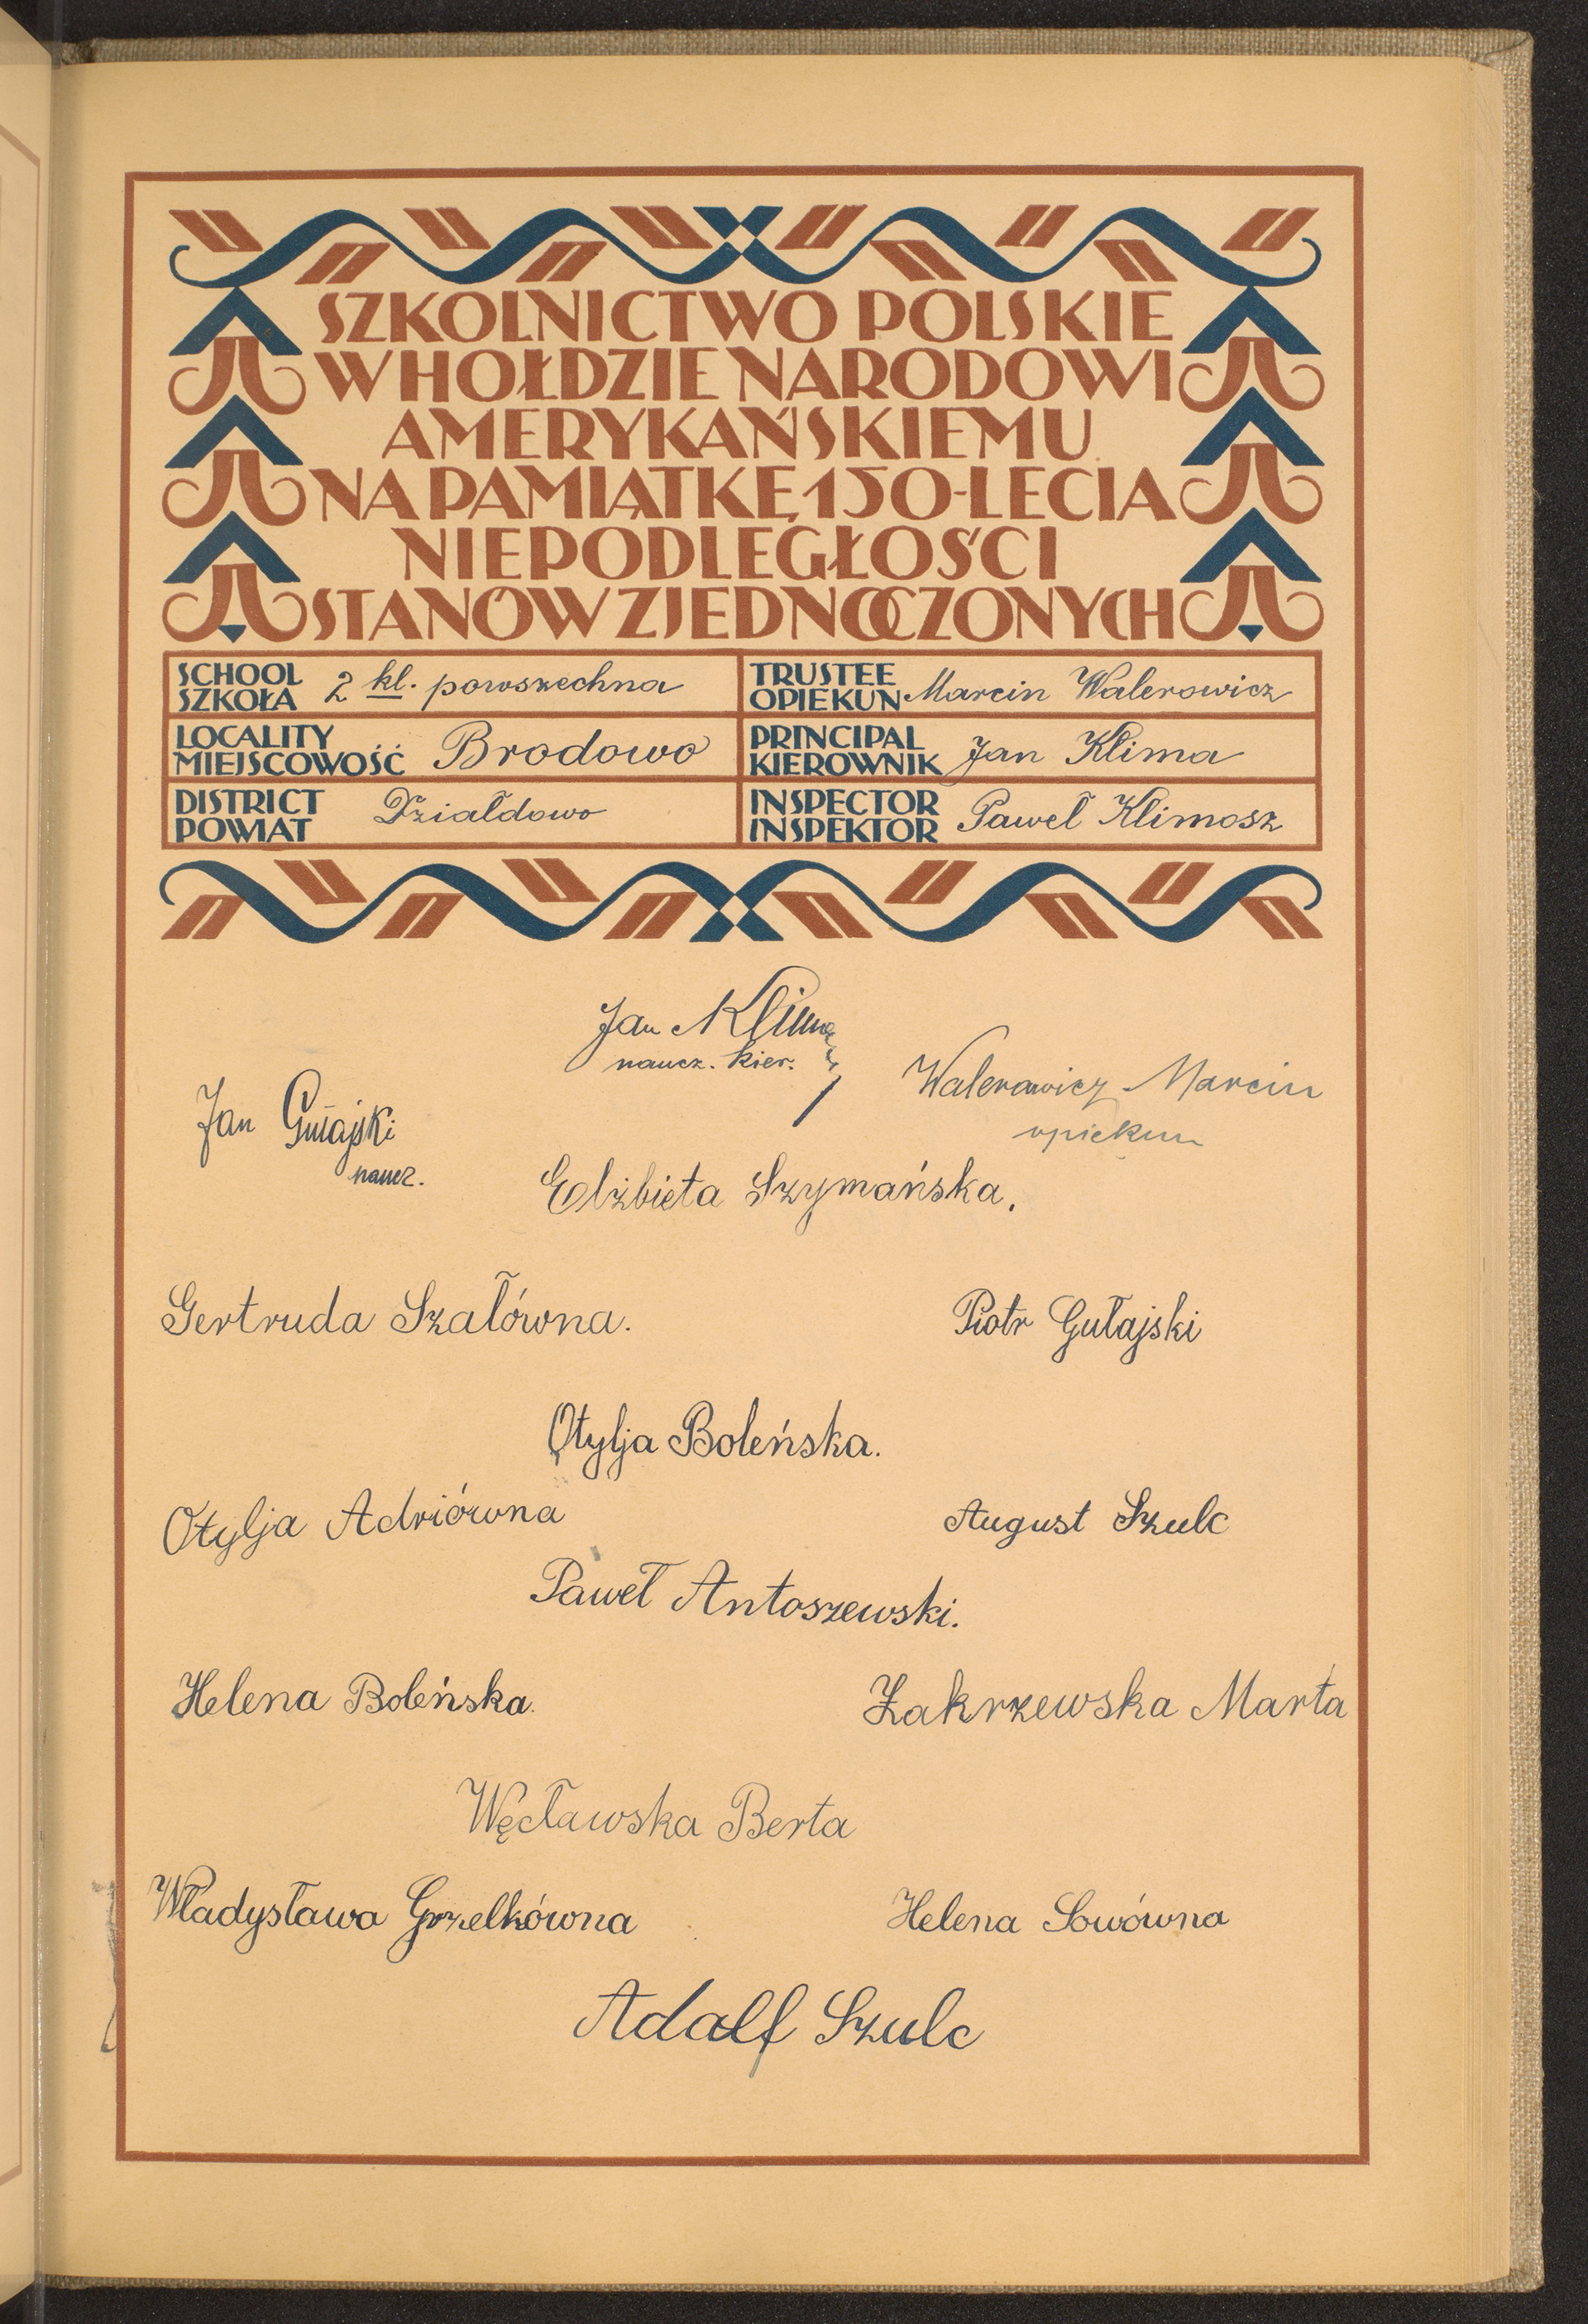 SZKOLNICTWO POLSKIE
W HOŁDZIE NARODOWI
AMERYKAŃSKIEMU
NA PAMIĄTKĘ 150-LECIA
NIEPODLEGŁOŚCI
STANÓW ZJEDNOCZONYCH
SCHOOL
SZKOŁA 2 kl. powszechna
TRUSTEE
OPIEKUN Marcin Walerowicz
LOCALITY
MIEJSCOWOŚĆ Brodowo
PRINCIPAL
KIEROWNIK Jan Klima
DISTRICT
POWIAT Działdowo
INSPECTOR
INSPEKTOR Paweł Klimosz
Jan Klima
naucz. kier.
Walerowicz Marcin
opiekun
Jan Gułajski
naucz.
Elżbieta Szymańska.
Gertruda Szałówna.
Piotr Gułajski
Otylja Boleńska.
Otylja Adriówna
August Szulc
Paweł Antoszewski.
Helena Boleńska.
Zakrzewska Marta
Węcławska Berta
Władysława Grzelkówna
Helena Sowówna
Adalf Szulc